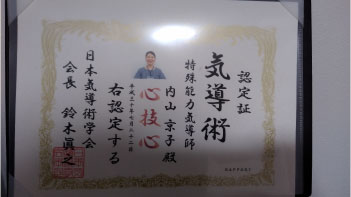 認定証
気導術
特殊能力気導師
内山 京子 殿
心技心
平成三十年七月二十二日
右認定する
日本気導術学会
会長 鈴木眞之